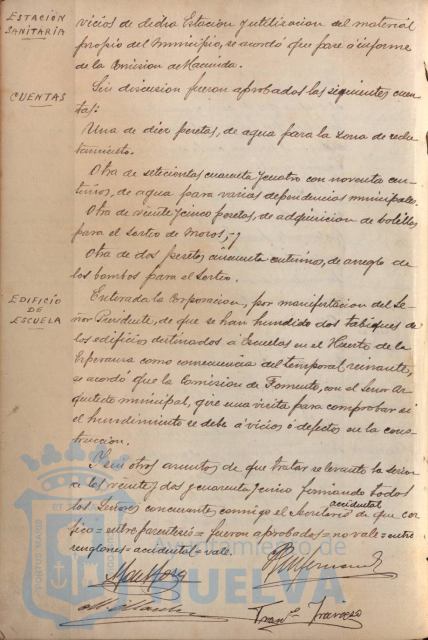 ESTACIÓN
SANITARIA
vicios de dicha Estación y utilizacion del material
propio del Municipio, se acordó que pase á informe
de la Comision de Hacienda.
CUENTAS
Sin discusion fueron aprobadas las siguientes cuen-
tas:
Una de diez pesetas, de agua para la zona de reclu-
tamiento.
Otra de setecientas cuarenta y cuatro con noventa cen-
timos, de agua para varias dependencias municipales.
Otra de veinte y cinco pesetas, de adquisicion de bolillos
para el Sorteo de Mozos, y
Otra de dos pesetas cuarenta centimos, de arreglo de
los bombos para el Sorteo.
EDIFICIO
DE
ESCUELA
Enterada la Corporacion, por manifestacion del Se-
ñor Presidente, de que se han hundido dos tabiques de
los edificios destinados á Escuelas en el Huerto de la
Esperanza como consecuencia del temporal reinante,
se acordó que la Comision de Fomento, con el Señor Ar-
quitecto municipal, gire una visita para comprobar si
el hundimiento se debe á vicios ó defectos en la cons-
truccion.
Y sin otros asuntos de que tratar se levanta la sesion
a las veinte y dos y cuarenta y cinco firmando todos
los Señores concurrentes conmigo el Secretario accidental de que cer-
tifico = entre parentesis = fueron aprobadas = no vale = entre
renglones = accidental = vale.
Franco. Travieso
Ayuntamiento de
HUELVA
PORTUS MARIS